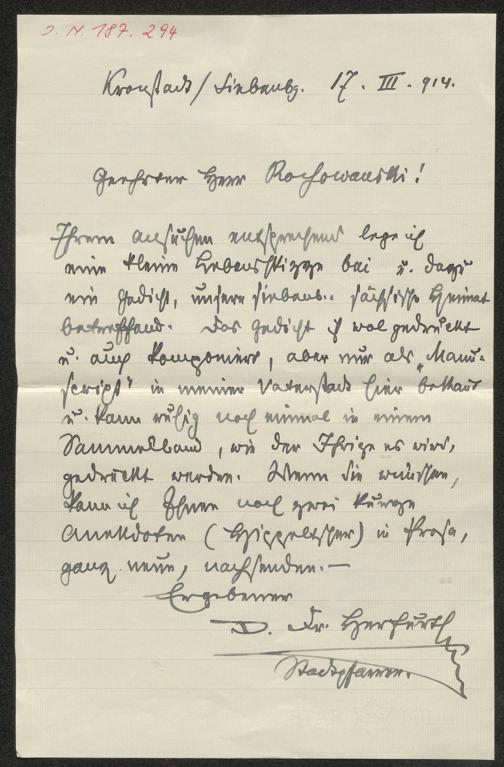 J. N. 187.294
Kronstadt / Siebenbg. 17. III. 914.
Geehrter Herr Rochowanski!
Ihrem Ansuchen entsprechend lege ich
eine kleine Lebensskizze bei u. dazu
ein Gedicht, unsere siebenb.- sächsische Heimat
betreffend. Das Gedicht ist wol gedruckt
u. auch komponiert, aber nur als „Manu-
script" in meiner Vaterstadt hier bekannt
u. kann ruhig noch einmal in einem
Sammelband, wie der Ihrige es wird,
gedruckt werden. Wenn Sie wünschen,
kann ich Ihnen noch zwei kurze
Anekdoten (Tschippeltscher) in Prosa,
ganz neue, nachsenden. —
Ergebener
D. Fr. Herfurth
Stadtpfarrer.